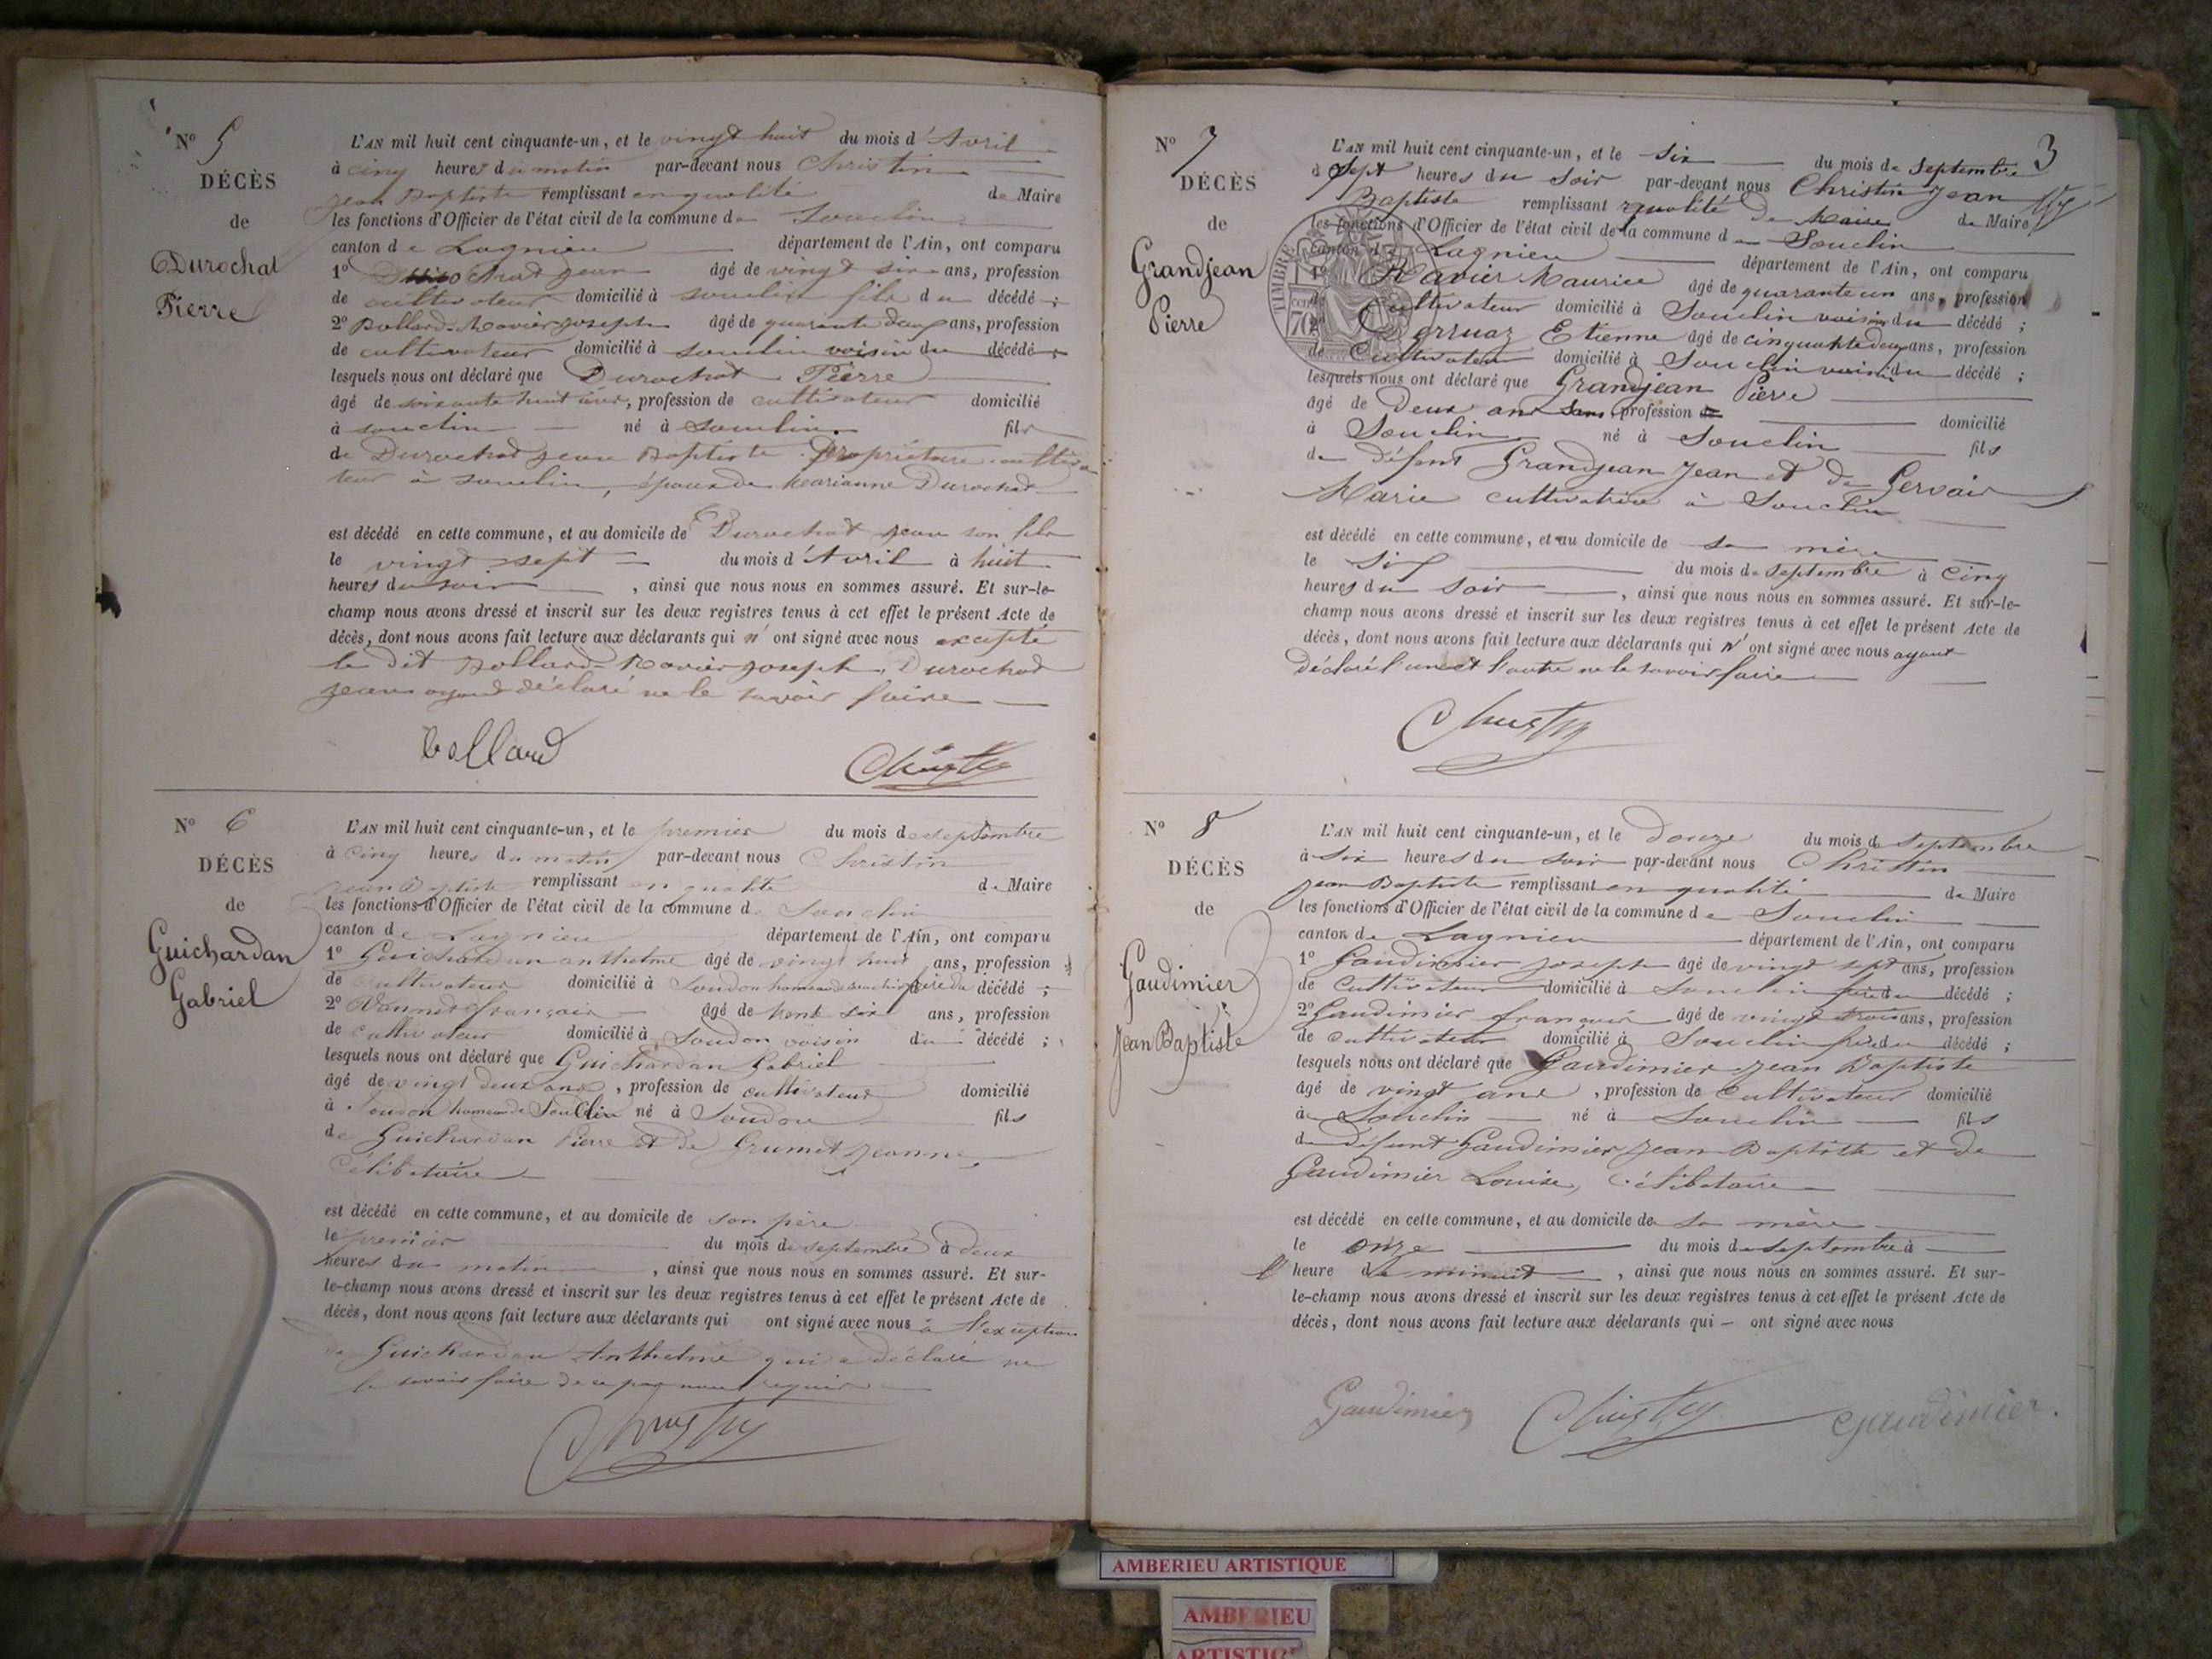 N° 5
DÉCÈS
de
Durochat
Pierre
L'AN mil huit cent cinquante-un, et le vingt huit du mois d'Avril
à cinq heures du matin par-devant nous Christin
Jean Baptiste remplissant en qualité de Maire
les fonctions d'Officier de l'état civil de la commune de Souclin
canton de Lagnieu département de l'Ain, ont comparu
1° Durochat Jean âgé de vingt six ans, profession
de cultivateur domicilié à Souclin fils du décédé ;
2° Bollard Xavier Joseph âgé de quarante deux ans, profession
de cultivateur domicilié à Souclin voisin du décédé ;
lesquels nous ont déclaré que Durochat Pierre
âgé de soixante huit ans, profession de cultivateur domicilié
à Souclin né à Souclin fils
de Durochat Jean Baptiste Propriétaire cultiva
teur à Souclin, époux de Marianne Durochat
est décédé en cette commune, et au domicile de Durochat Jean son fils
le vingt sept du mois d'Avril à huit
heures du soir , ainsi que nous nous en sommes assuré. Et sur-le-
champ nous avons dressé et inscrit sur les deux registres tenus à cet effet le présent Acte de
décès, dont nous avons fait lecture aux déclarants qui n' ont signé avec nous excepté
le dit Bollard Xavier Joseph. Durochat
Jean ayant déclaré ne le savoir faire
Bollard Christin
N° 6
DÉCÈS
de
Guichardan
Gabriel
L'AN mil huit cent cinquante-un, et le premier du mois de septembre
à cinq heures du matin par-devant nous Christin
Jean Baptiste remplissant en qualité de Maire
les fonctions d'Officier de l'état civil de la commune de Souclin
canton de Lagnieu département de l'Ain, ont comparu
1° Guichardan anthelme âgé de vingt huit ans, profession
de cultivateur domicilié à Soudon hameau de Souclin frère du décédé ;
2° Vannet françois âgé de trente six ans, profession
de cultivateur domicilié à Soudon voisin du décédé ;
lesquels nous ont déclaré que Guichardan Gabriel
âgé de vingt deux ans, profession de cultivateur domicilié
à Soudon hameau de Souclin né à Soudon fils
de Guichardan Pierre et de Grumet Jeanne,
Célibataire
est décédé en cette commune, et au domicile de son père
le premier du mois de septembre à deux
heures du matin , ainsi que nous nous en sommes assuré. Et sur-
le-champ nous avons dressé et inscrit sur les deux registres tenus à cet effet le présent Acte de
décès, dont nous avons fait lecture aux déclarants qui ont signé avec nous à l'exception
de Guichardan Anthelme qui a déclaré ne
le savoir faire de ce par nous requis
Christin
N° 7
DÉCÈS
de
Grandjean
Pierre
3
TIMBRE
70
L'AN mil huit cent cinquante-un, et le six du mois de Septembre
à Sept heures du soir par-devant nous Christin Jean
Baptiste remplissant qualité de Maire de Maire
les fonctions d'Officier de l'état civil de la commune de Souclin
canton de Lagnieu département de l'Ain, ont comparu
1° Xavier Maurice âgé de quarante un ans, profession
de Cultivateur domicilié à Souclin voisin du décédé ;
2° Etienne âgé de cinquante deux ans, profession
de Cultivateur domicilié à Souclin voisin du décédé ;
lesquels nous ont déclaré que Grandjean Pierre
âgé de Deux ans Sans profession de domicilié
à Souclin né à Souclin fils
de Défunt Grandjean Jean et de Gervais
Marie cultivatrice à Souclin
est décédé en cette commune, et au domicile de sa mère
le six du mois de Septembre à cinq
heures du soir , ainsi que nous nous en sommes assuré. Et sur-le-
champ nous avons dressé et inscrit sur les deux registres tenus à cet effet le présent Acte de
décès, dont nous avons fait lecture aux déclarants qui n' ont signé avec nous ayant
Déclaré l'un et l'autre ne le savoir faire
Christin
N° 8
DÉCÈS
de
Gaudimier
Jean Baptiste
L'AN mil huit cent cinquante-un, et le douze du mois de Septembre
à six heures du soir par-devant nous Christin
Jean Baptiste remplissant en qualité de Maire
les fonctions d'Officier de l'état civil de la commune de Souclin
canton de Lagnieu département de l'Ain, ont comparu
1° Gaudimier Joseph âgé de vingt sept ans, profession
de cultivateur domicilié à Souclin frère du décédé ;
2° Gaudimier françois âgé de vingt trois ans, profession
de cultivateur domicilié à Souclin frère du décédé ;
lesquels nous ont déclaré que Gaudimier Jean Baptiste
âgé de vingt ans , profession de Cultivateur domicilié
à Souclin né à Souclin fils
de défunt Gaudimier Jean Baptiste et de
Gaudimier Louise, Célibataire
est décédé en cette commune, et au domicile de sa mère
le onze du mois de septembre à
l' heure de minuit , ainsi que nous nous en sommes assuré. Et sur-
le-champ nous avons dressé et inscrit sur les deux registres tenus à cet effet le présent Acte de
décès, dont nous avons fait lecture aux déclarants qui — ont signé avec nous
Gaudimier Christin Gaudimier.
AMBERIEU ARTISTIQUE
AMBERIEU
ARTISTIQ